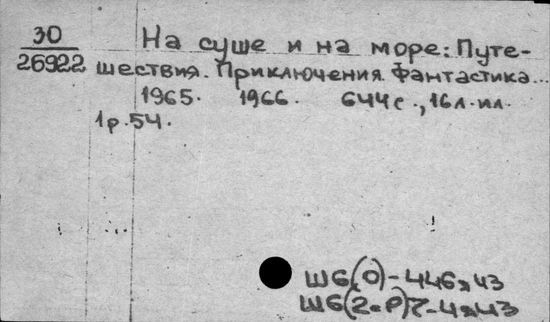 30
26922
На суше и на море: Путе-
шествия. Приключения. Фантастика...
1965. 1966. 644с., 16л. ил.
1р. 54.
Ш6(0)-446я43
Ш6(2=Р)7-4я43